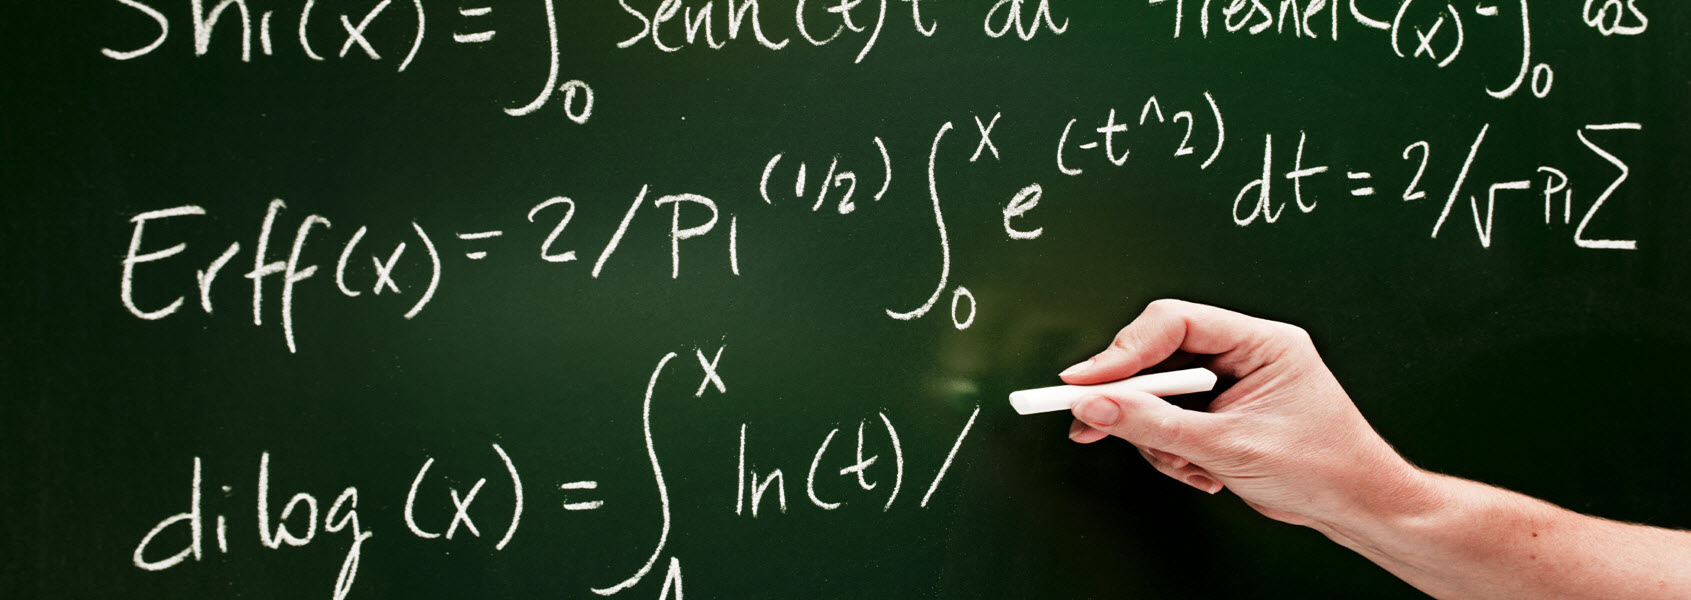 Shi(x) = ∫₀ Senh(t) t dt Fresnel C(x) = ∫₀ cos
Erff(x) = 2/Pi^(1/2) ∫₀ˣ e^(-t^2) dt = 2/√Pi Σ
dilog(x) = ∫₁ˣ ln(t)/